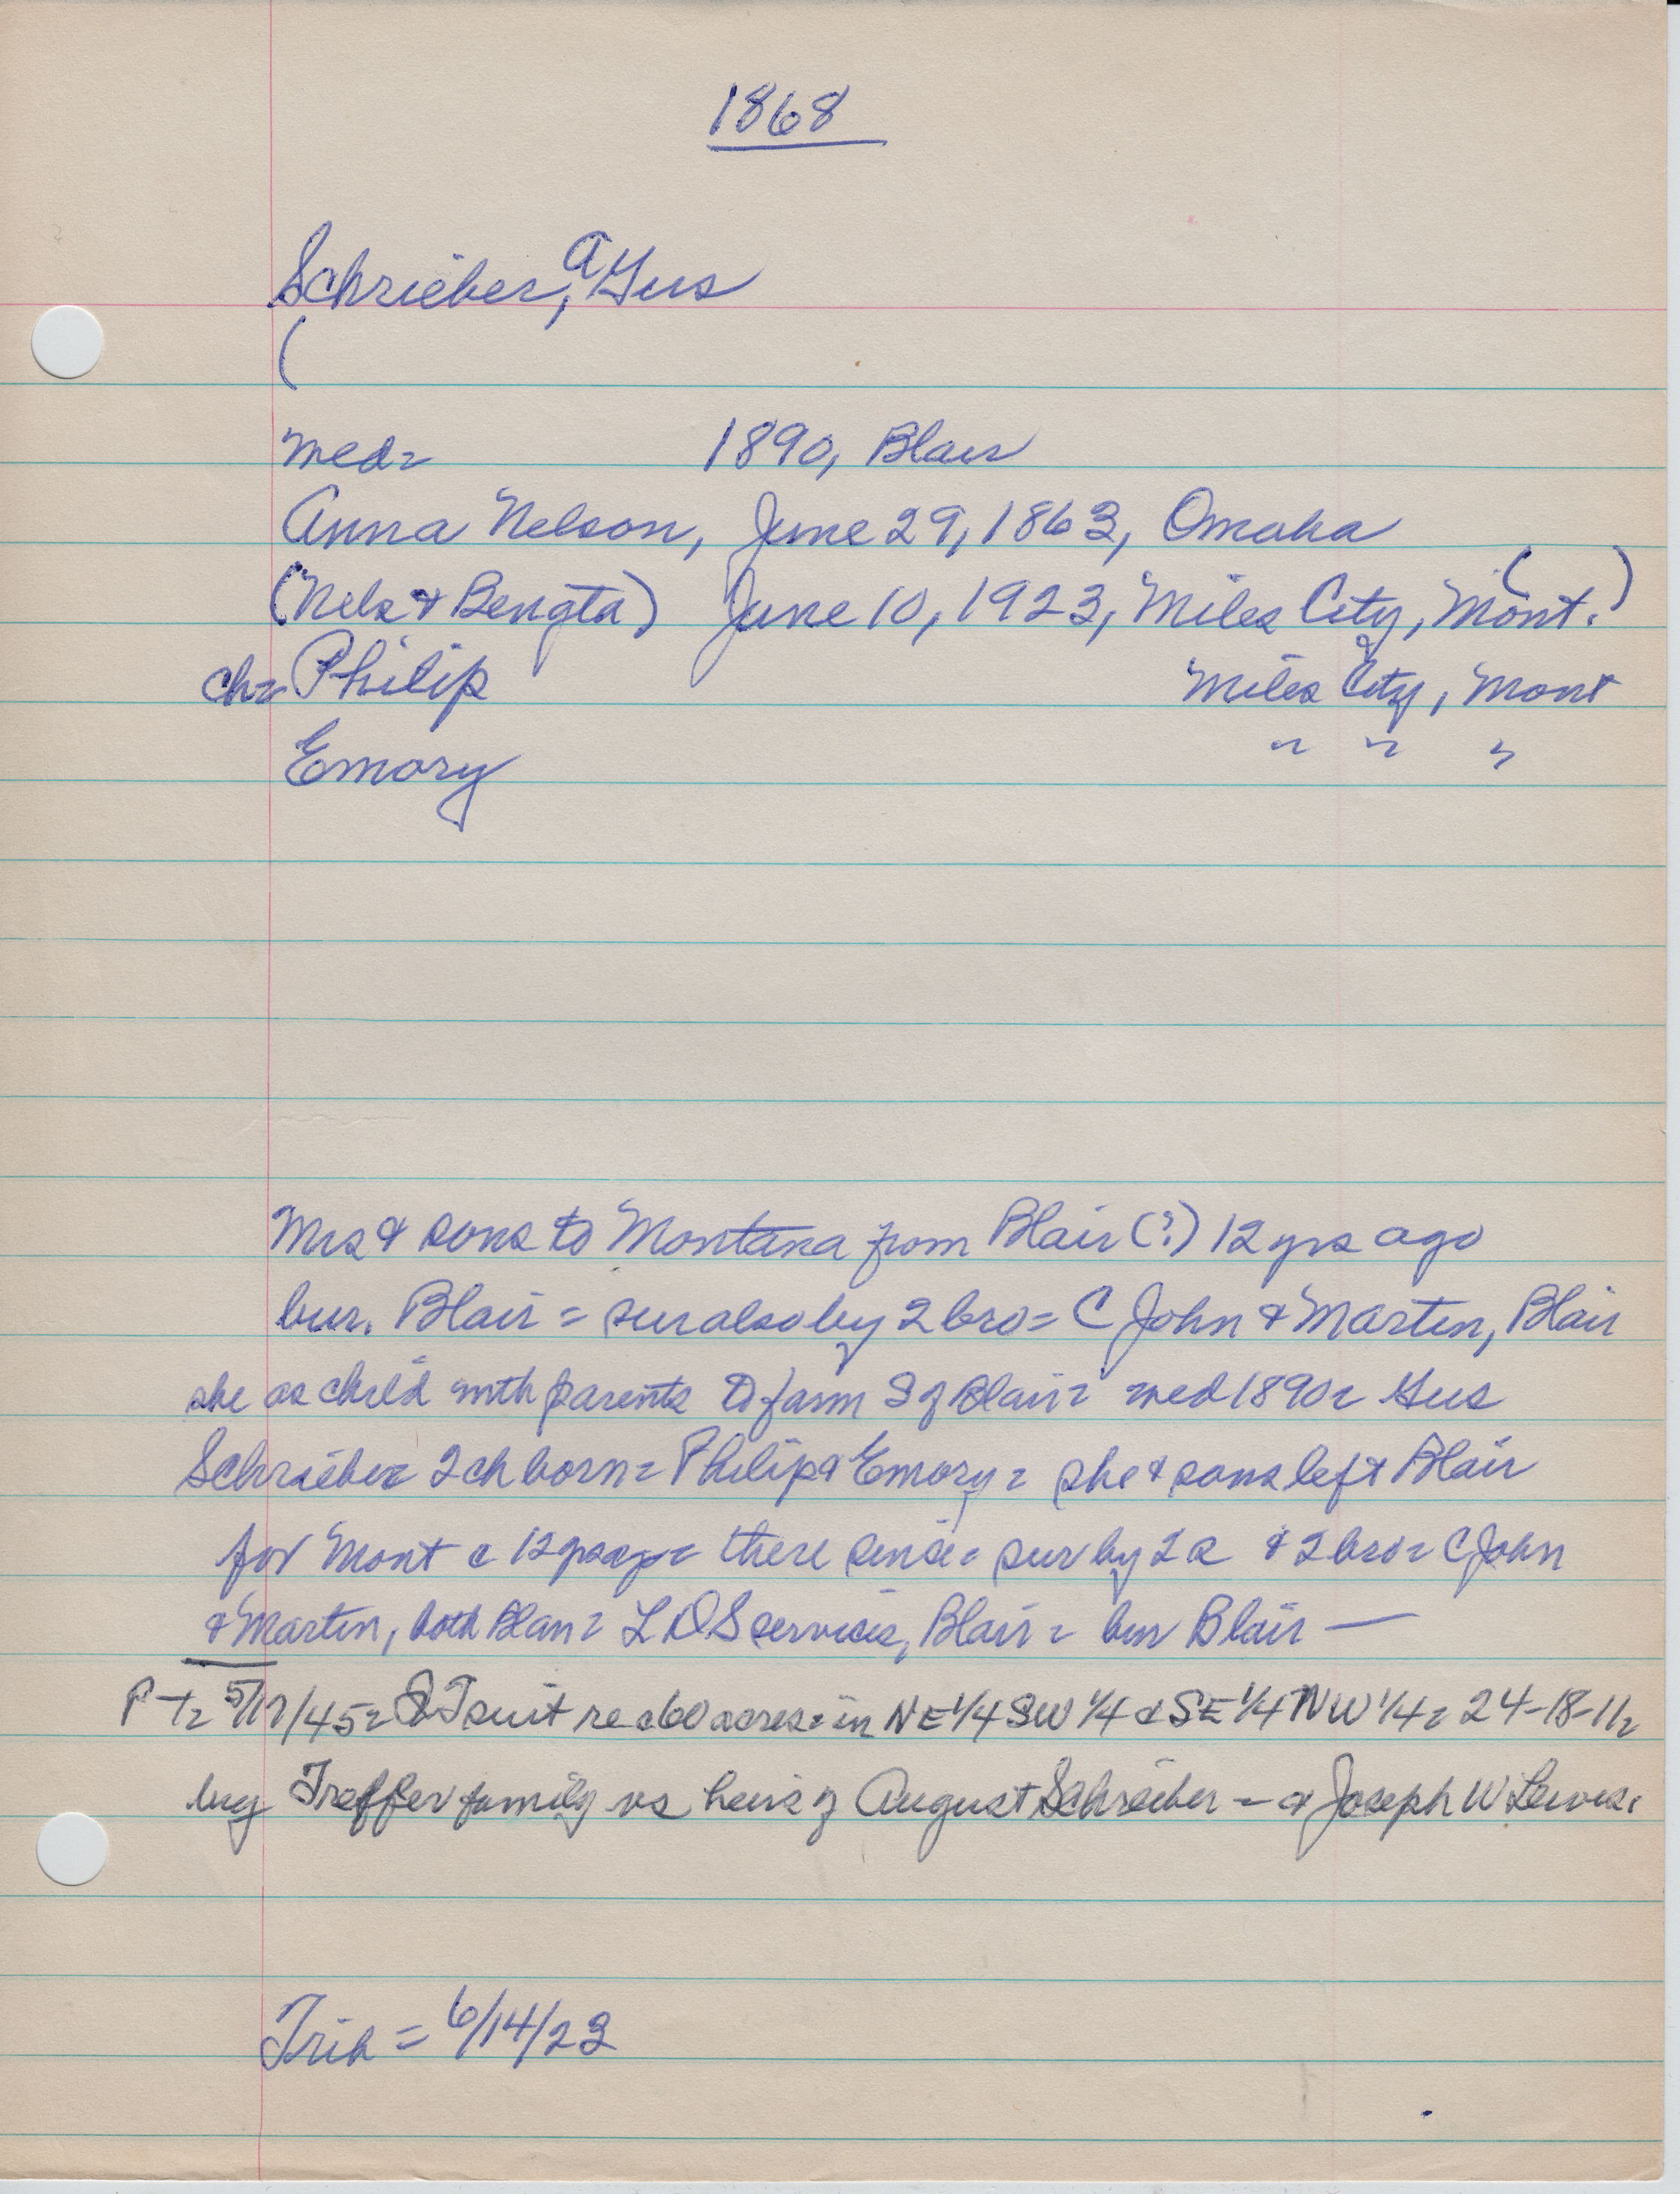 1868
Schrieber, A Gus
(
wed= 1890, Blair
Anna Nelson, June 29, 1863, Omaha
(Nels & Bengta) June 10, 1923, Miles City, Mont. ( )
ch= Philip Miles City, Mont
Emory " " "
Mrs & sons to Montana from Blair (?) 12 yrs ago
bur. Blair = sur also by 2 bro = C John & Martin, Blair
she as child with parents to farm S of Blair = wed 1890 = Gus
Schrieber 2 ch born = Philip & Emory = she & sons left Blair
for Mont c 12 yrs ago = there since = sur by 2 s & 2 bro = C John
& Martin, both Blair = LDS services, Blair = bur Blair —
P-T= 5/17/45= QT suit re c60 acres = in NE 1/4 SW 1/4 & SE 1/4 NW 1/4 = 24-18-11=
by Treffer family vs heirs of August Schrieber - & Joseph W Lewis.
Trib = 6/14/23